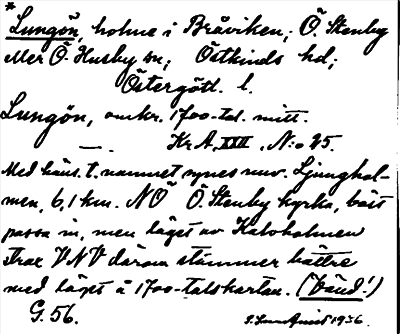 * Lungön, holme i Bråviken; Ö. Stenby
eller Ö. Husby sn; Östkinds hd;
Östergötl. l.
Lungön, omkr. 1700-tal. mitt.
— . Kr A, XXII, N:o 25.
Med häns. t. namnet synes nuv. Ljunghol-
men, 6,1 km. NÖ Ö. Stenby kyrka, bäst
passa in, men läget av Kaloholmen
strax VNV därom stämmer bättre
med läget å 1700-talskartan. (Vänd!)
G. 56. 1936.